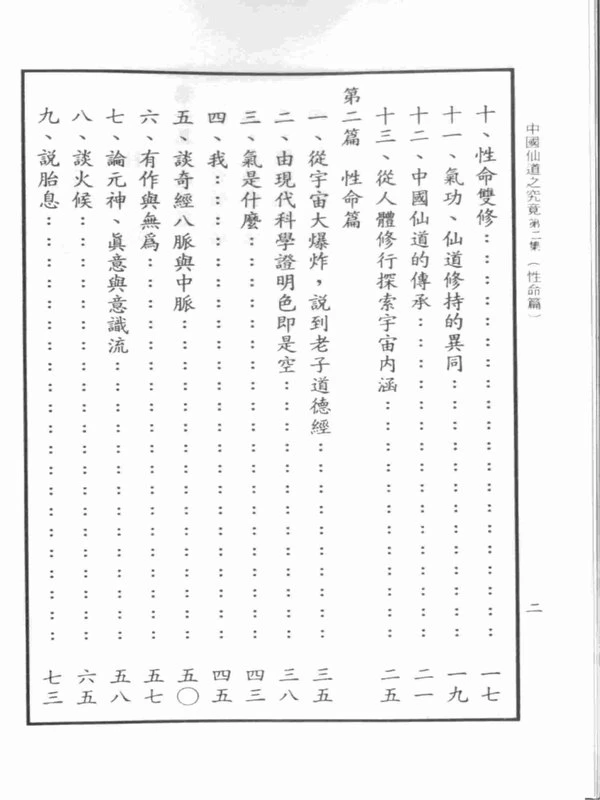 中國仙道之究竟第二集（性命篇）
二
十、性命雙修：：：：：：：：：：：：：：：：：：一七
十一、氣功、仙道修持的異同：：：：：：：：：：：：一九
十二、中國仙道的傳承：：：：：：：：：：：：：：：二一
十三、從人體修行探索宇宙内涵：：：：：：：：：：：二五
第二篇　性命篇
一、從宇宙大爆炸，説到老子道德經：：：：：：：：：三五
二、由現代科學證明色即是空：：：：：：：：：：：：三八
三、氣是什麼：：：：：：：：：：：：：：：：：：：四三
四、我：：：：：：：：：：：：：：：：：：：：：：四五
五、談奇經八脈與中脈：：：：：：：：：：：：：：：五〇
六、有作與無爲：：：：：：：：：：：：：：：：：：五七
七、論元神、眞意與意識流：：：：：：：：：：：：：五八
八、談火候：：：：：：：：：：：：：：：：：：：：六五
九、説胎息：：：：：：：：：：：：：：：：：：：：七三